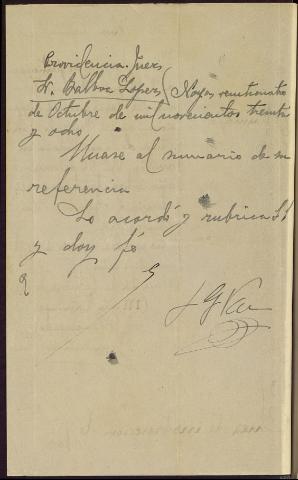 Providencia Juez
Sr. Balboa Lopez / Noya, veinticuatro
de Octubre de mil novecientos treinta
y ocho
Unase al sumario de su
referencia
Lo acordó y rubrica S.S.
y doy fé